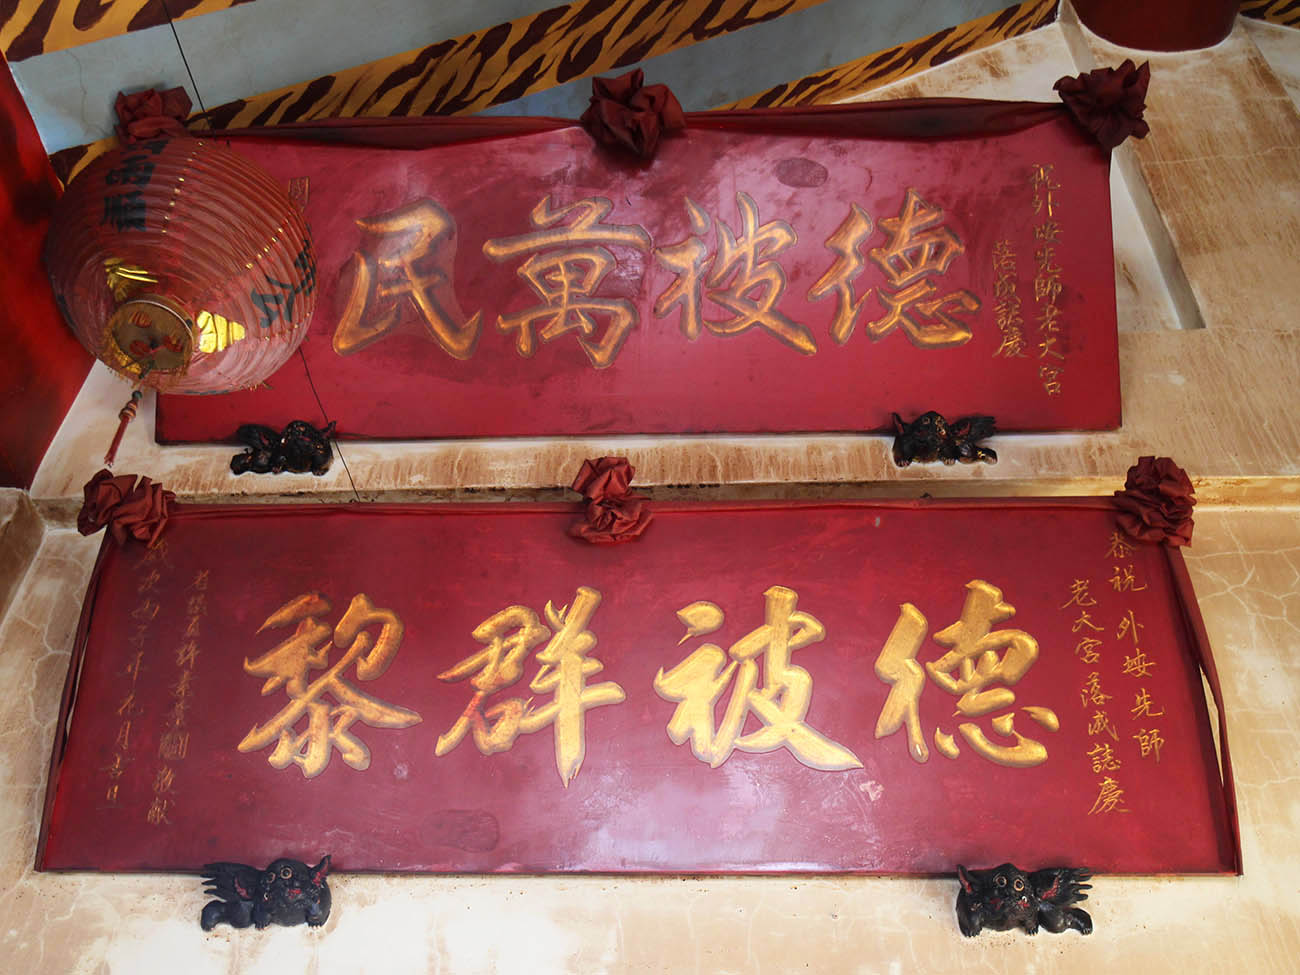 祝外垵先師老大宮
落成誌慶
德被萬民
恭祝 外垵先師
老大宮落成誌慶
德被群黎
敬獻
歲次丙子年花月吉旦